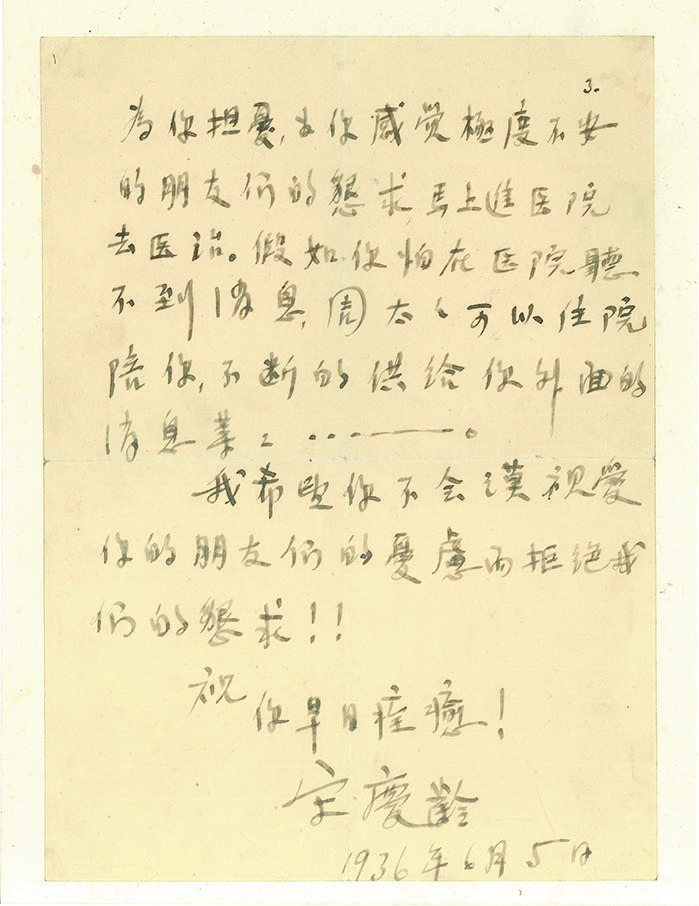 3.
為你担憂,为你感觉極度不安
的朋友们的懇求,馬上進医院
去医治。假如你怕在医院聽
不到消息,周太く可以住院
陪你,不断的供给你外面的
消息等〻……——。
我希望你不会漠視愛
你的朋友们的憂慮而拒绝我
们的懇求!!
祝
你早日痊癒!
宋慶齡
1936年6月5日